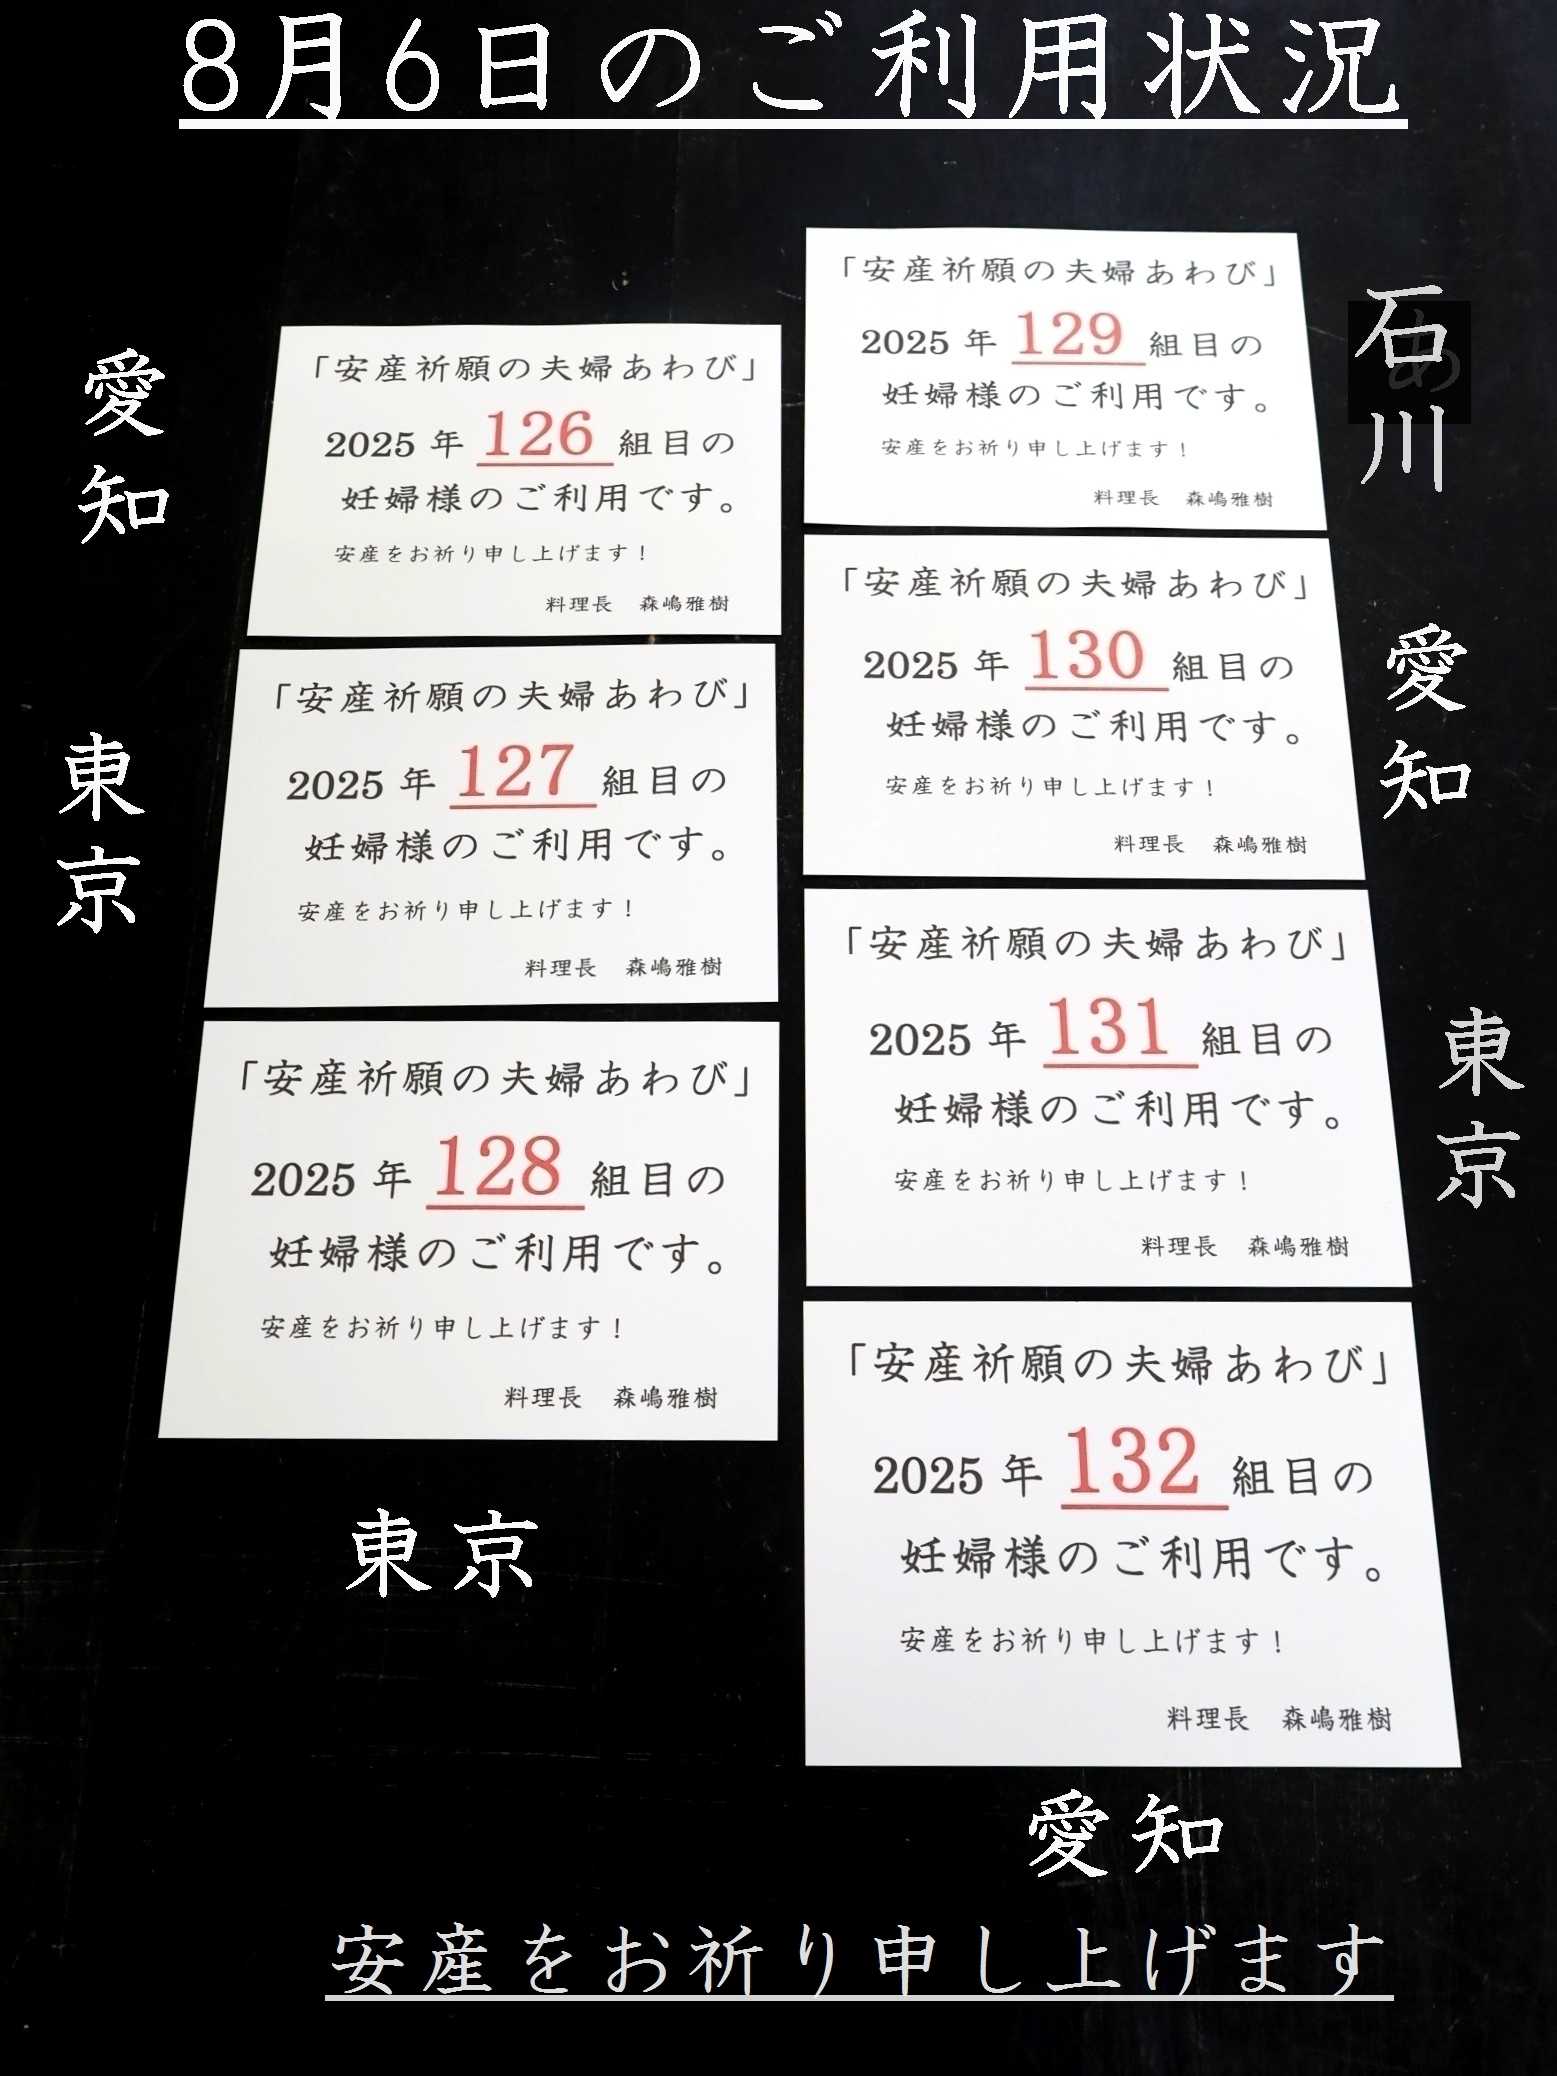 8月6日のご利用状況
愛知
「安産祈願の夫婦あわび」
2025年 126 組目の
妊婦様のご利用です。
安産をお祈り申し上げます！
料理長 森嶋雅樹
東京
「安産祈願の夫婦あわび」
2025年 127 組目の
妊婦様のご利用です。
安産をお祈り申し上げます！
料理長 森嶋雅樹
「安産祈願の夫婦あわび」
2025年 128 組目の
妊婦様のご利用です。
安産をお祈り申し上げます！
料理長 森嶋雅樹
東京
石川
あ
「安産祈願の夫婦あわび」
2025年 129 組目の
妊婦様のご利用です。
安産をお祈り申し上げます！
料理長 森嶋雅樹
愛知
「安産祈願の夫婦あわび」
2025年 130 組目の
妊婦様のご利用です。
安産をお祈り申し上げます！
料理長 森嶋雅樹
東京
「安産祈願の夫婦あわび」
2025年 131 組目の
妊婦様のご利用です。
安産をお祈り申し上げます！
料理長 森嶋雅樹
「安産祈願の夫婦あわび」
2025年 132 組目の
妊婦様のご利用です。
安産をお祈り申し上げます！
料理長 森嶋雅樹
愛知
安産をお祈り申し上げます